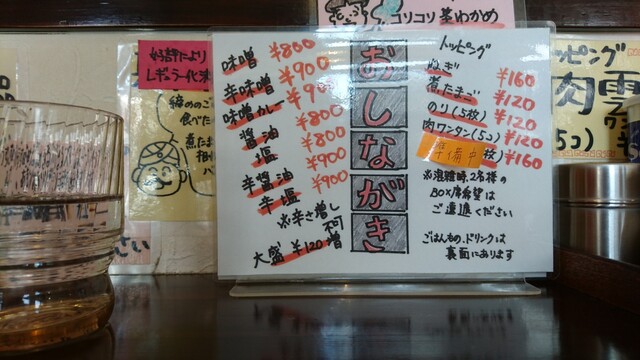 コリコリ 茎わかめ
好評により
レギュラー化決
締めのご
食べた
煮たま
おしながき
味噌 ¥800
辛味噌 ¥900
味噌カレー ¥900
醤油 ¥800
塩 ¥800
辛醤油 ¥900
辛塩 ¥900
※辛さ増し
不可
大盛 ¥120増
トッピング
ねぎ ¥160
煮たまご ¥120
のり(5枚) ¥120
肉ワンタン(5コ) ¥120
準備中 枚) ¥160
※混雑時、2名様の
BOX席希望は
ご遠慮ください
ごはんもの、ドリンクは
裏面にあります
トッピング
肉雲
ワ
5コ)
¥1
さい